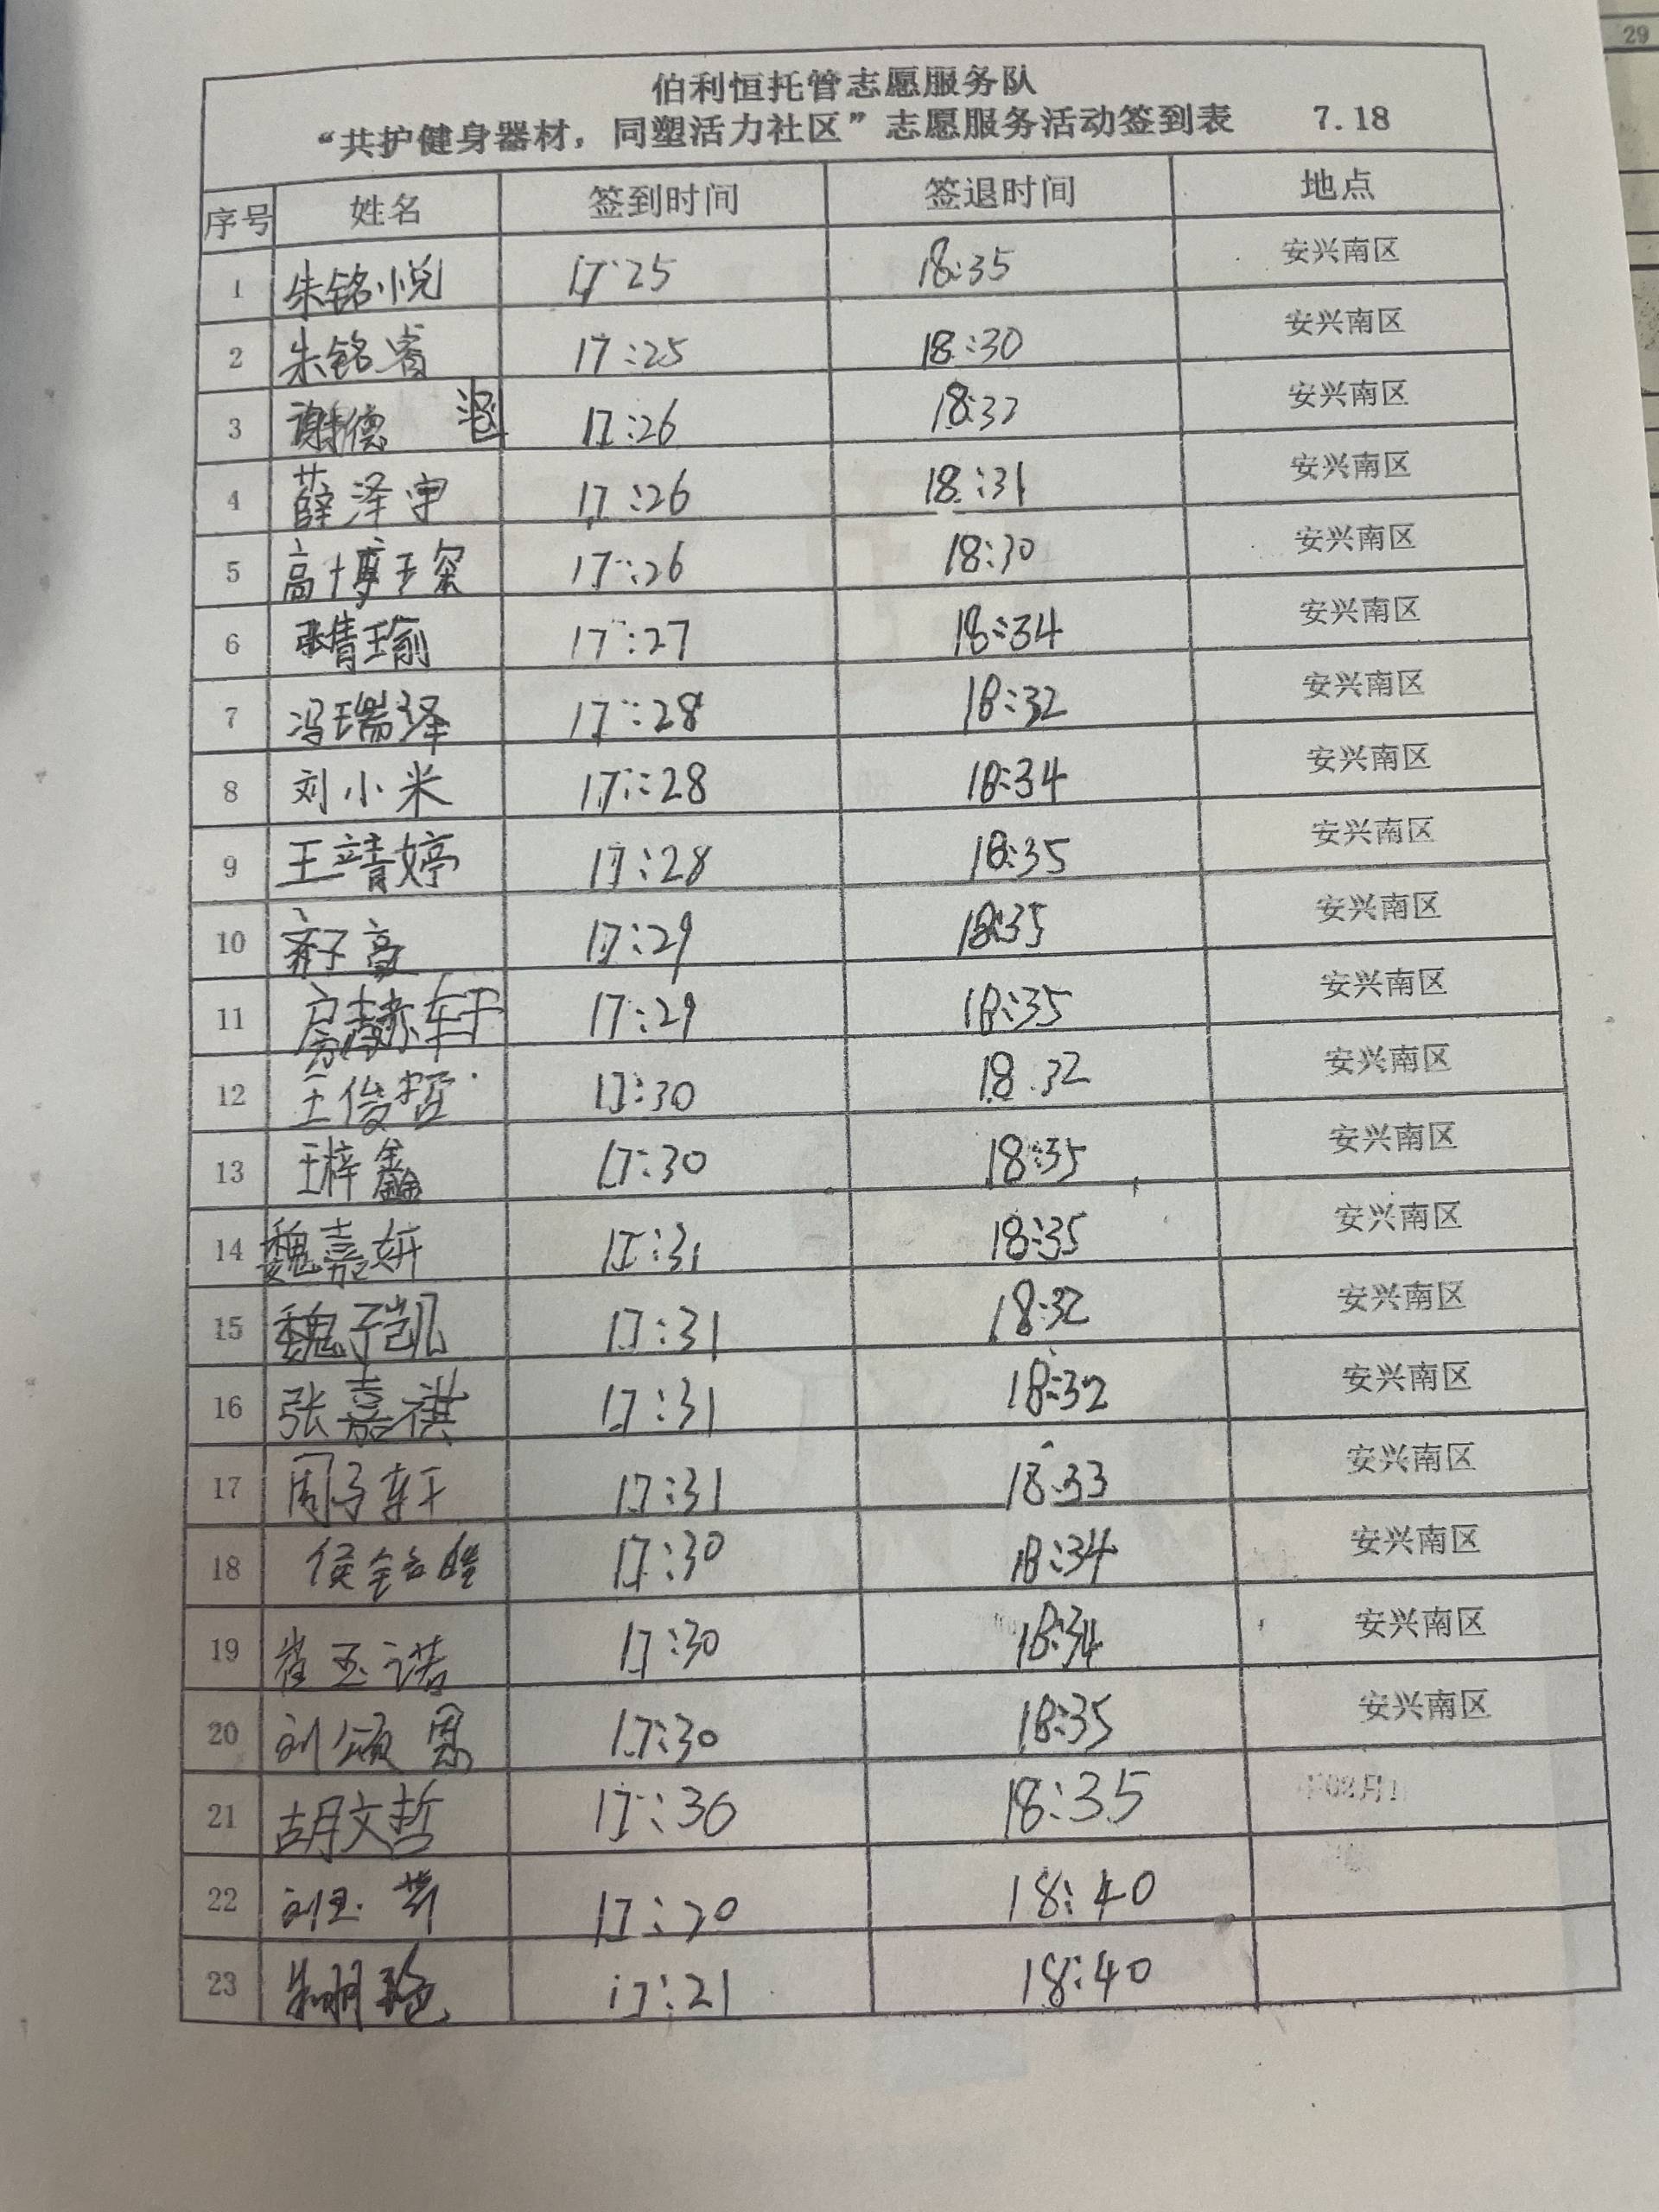 伯利恒托管志愿服务队
“共护健身器材，同塑活力社区”志愿服务活动签到表 7.18
序号 姓名 签到时间 签退时间 地点
1 朱铭悦 17:25 18:35 安兴南区
2 朱铭睿 17:25 18:30 安兴南区
3 谢德 17:26 18:32 安兴南区
4 薛泽宇 17:26 18:31 安兴南区
5 高博琛 17:26 18:30 安兴南区
6 张倩瑜 17:27 18:34 安兴南区
7 冯瑞泽 17:28 18:32 安兴南区
8 刘小米 17:28 18:34 安兴南区
9 王靖婷 17:28 18:35 安兴南区
10 齐子豪 17:29 18:35 安兴南区
11 房赫轩 17:29 18:35 安兴南区
12 王俊哲 17:30 18:32 安兴南区
13 王梓鑫 17:30 18:35 安兴南区
14 魏嘉妍 17:31 18:35 安兴南区
15 魏子凯 17:31 18:32 安兴南区
16 张嘉祺 17:31 18:32 安兴南区
17 周子轩 17:31 18:33 安兴南区
18 侯铭皓 17:30 18:34 安兴南区
19 崔玉诺 17:30 18:34 安兴南区
20 刘颂恩 17:30 18:35 安兴南区
21 胡文哲 17:30 18:35
22 刘玉芳 17:20 18:40
23 朱明艳 17:21 18:40
29